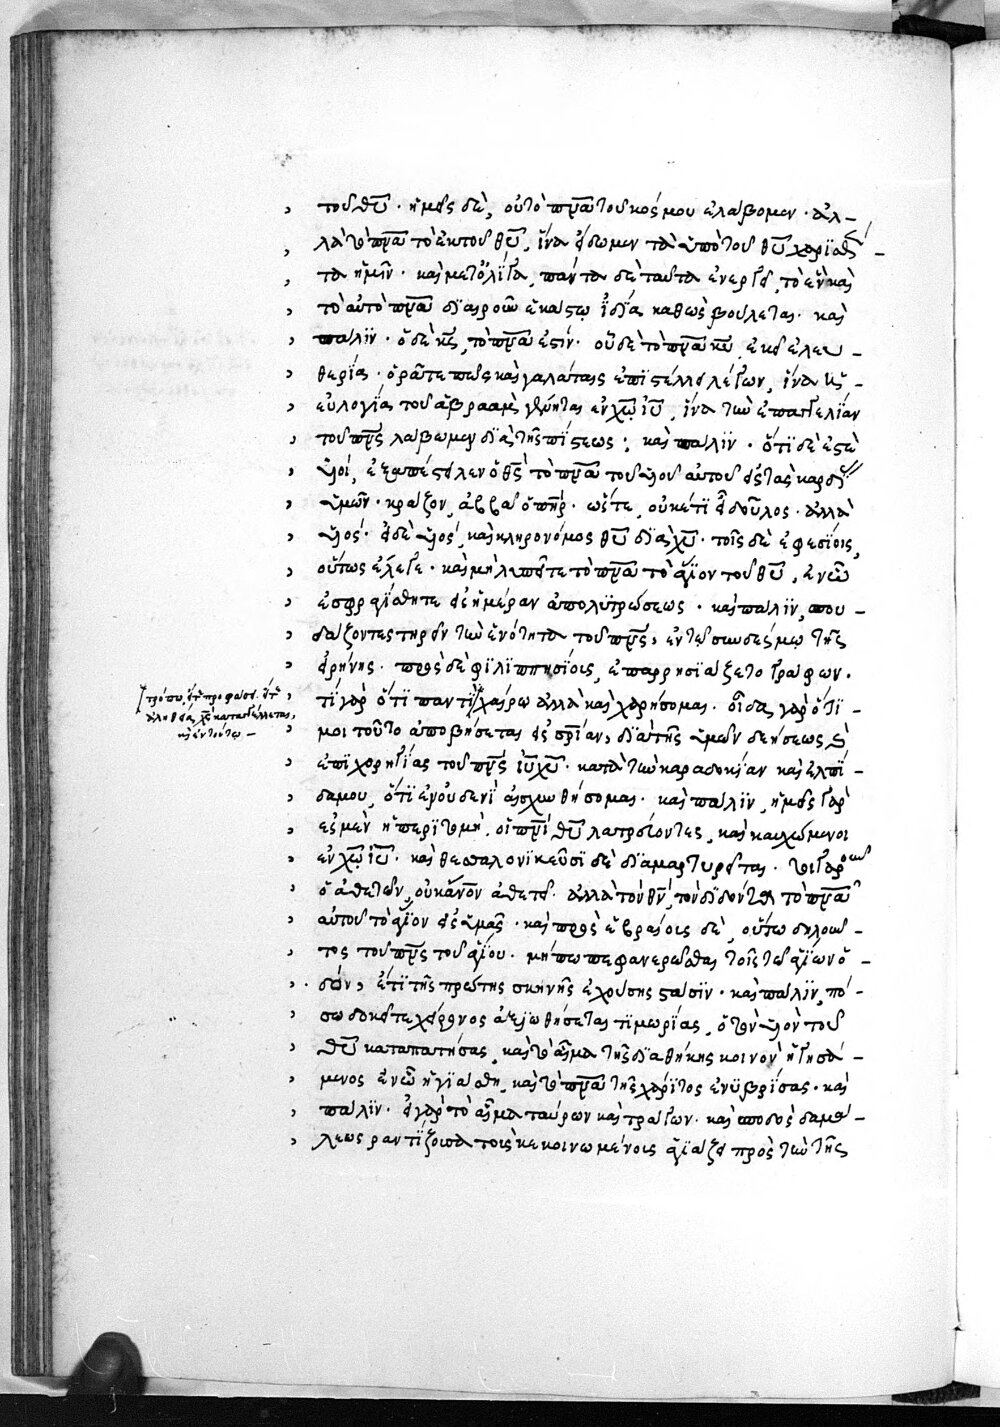 τοῦ θ̅υ̅· ἡμεῖς δὲ, οὐ τὸ π̅ν̅α̅ τοῦ κόσμου ἐλάβομεν· ἀλ-
λὰ τὸ π̅ν̅α̅ τὸ ἐκ τοῦ θ̅υ̅, ἵνα εἰδῶμεν τὰ ὑπὸ τοῦ θ̅υ̅ χαρισθέν-
τα ἡμῖν· καὶ μετ' ὀλίγα, πάντα δὲ ταῦτα ἐνεργεῖ, τὸ ἓν καὶ
τὸ αὐτὸ π̅ν̅α̅ διαιροῦν ἑκάστω ἰδία καθὼς βούλεται· καὶ
πάλιν· ὁ δὲ κ̅ς̅, τὸ π̅ν̅α̅ ἐστίν· οὗ δὲ τὸ π̅ν̅α̅ κ̅υ̅, ἐκεῖ ἐλευ-
θερία· ὁρᾶτε πῶς καὶ γαλάταις ἐπιστέλλει λέγων, ἵνα ἡ
εὐλογία τοῦ ἀβραὰμ γένηται ἐν χ̅ω̅ ι̅υ̅, ἵνα τὴν ἐπαγγελίαν
τοῦ π̅ν̅ς̅ λάβωμεν διὰ τῆς πίστεως· καὶ πάλιν· ὅτι δέ ἐστε
υἱοί, ἐξαπέστειλεν ὁ θ̅ς̅ τὸ π̅ν̅α̅ τοῦ υἱοῦ αὐτοῦ εἰς τὰς καρδί
ὑμῶν· κράζον, ἀββᾶ ὁ π̅η̅ρ̅· ὥστε, οὐκέτι εἶ δοῦλος· ἀλλὰ
υἱός· εἰ δὲ υἱός, καὶ κληρονόμος θ̅υ̅ διὰ χ̅υ̅· τοῖς δὲ ἐφεσίοις,
οὕτως ἔλεγε· καὶ μὴ λυπεῖτε τὸ π̅ν̅α̅ τὸ ἅγιον τοῦ θ̅υ̅, ἐν ὧ
ἐσφραγίσθητε εἰς ἡμέραν ἀπολυτρώσεως· καὶ πάλιν, σπου-
δάζοντες τηρεῖν τὴν ἑνότητα τοῦ π̅ν̅ς̅, ἐν τῶ συνδέσμω τῆς
εἰρήνης· πρὸς δὲ φιλιππησίοις, ἐπαρρησιάζετο γράφων·
τί γὰρ ὅτι παντὶ χαίρω ἀλλὰ καὶ χαρήσομαι· οἶδα γὰρ ὅτι
τρόπω, εἴτε προφάσει, εἴτε
ἀληθεία, χ̅ς̅ καταγγέλλεται,
καὶ ἐν τούτω-
μοι τοῦτο ἀποβήσεται εἰς σ̅ρ̅ί̅αν, διὰ τῆς ὑμῶν δεήσεως καὶ
ἐπιχορηγίας τοῦ π̅ν̅ς̅ ι̅υ̅ χ̅υ̅· κατὰ τὴν καραδοκίαν καὶ ἐλπί-
δα μου, ὅτι ἐν οὐδενὶ αἰσχυνθήσομαι· καὶ πάλιν, ἡμεῖς γάρ
ἐσμεν ἡ περιτομὴ, οἱ π̅ν̅ι̅ θ̅υ̅ λατρεύοντες, καὶ καυχώμενοι
ἐν χ̅ω̅ ι̅υ̅· καὶ θεσσαλονικεῦσι δὲ διαμαρτύρεται·
ὁ ἀθετῶν, οὐκ ἄνον ἀθετεῖ· ἀλλὰ τὸν θ̅ν̅, τὸν διδόντα τὸ π̅ν̅α̅
αὐτοῦ τὸ ἅγιον εἰς ὑμᾶς· καὶ πρὸς ἑβραίοις δὲ, οὕτω δηλοῦν-
τος τοῦ π̅ν̅ς̅ τοῦ ἁγίου· μήπω πεφανερῶσθαι τὴν τῶν ἁγίων ὁ-
δὸν, ἔτι τῆς πρώτης σκηνῆς ἐχούσης στάσιν· καὶ πάλιν, πό-
σω δοκεῖτε χείρονος ἀξιωθήσεται τιμωρίας, ὁ τὸν υἱὸν τοῦ
θ̅υ̅ καταπατήσας, καὶ τὸ αἷμα τῆς διαθήκης κοινὸν ἡγησά-
μενος ἐν ὧ ἡγιάσθη, καὶ τὸ π̅ν̅α̅ τῆς χάριτος ἐνυβρίσας· καὶ
πάλιν· εἰ γὰρ τὸ αἷμα ταύρων καὶ τράγων· καὶ σποδὸς δαμά-
λεως ραντίζουσα τοὺς κεκοινωμένους ἁγιάζει πρὸς τὴν τῆς